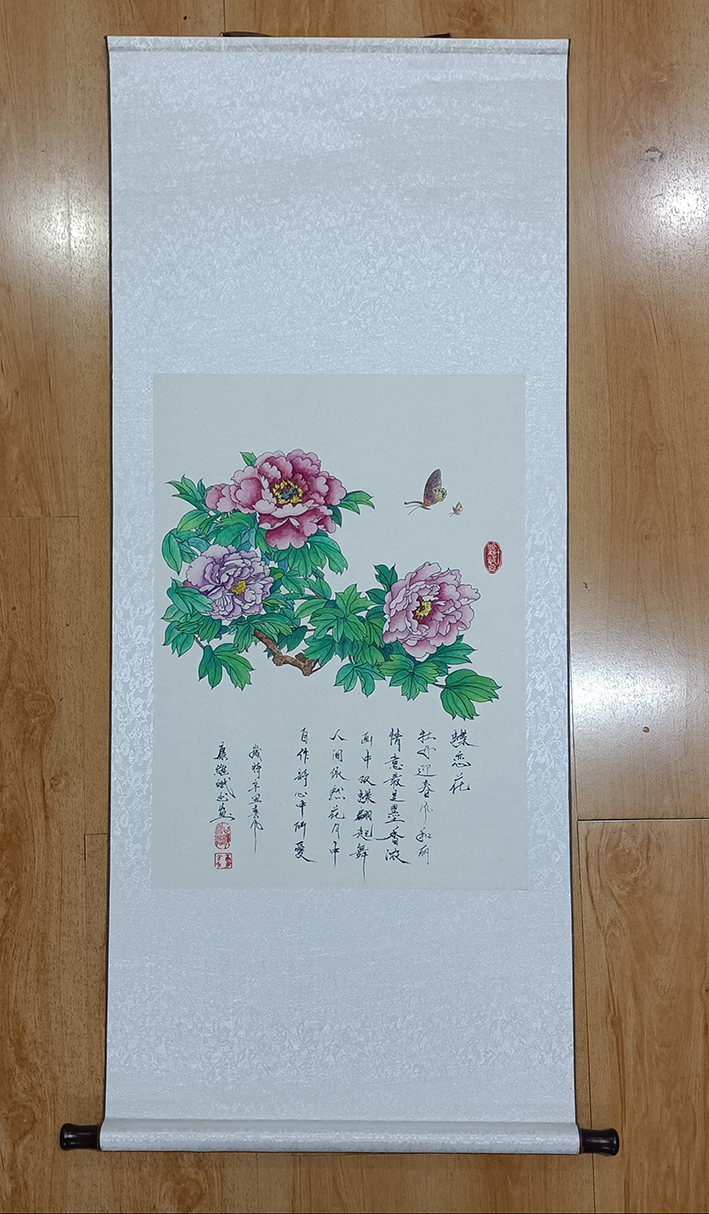 蝶恋花
牡丹迎春风和雨
情意最是墨香浓
画中双蝶翩起舞
人间依然花月中
自作诗心中所爱
岁时辛丑春月